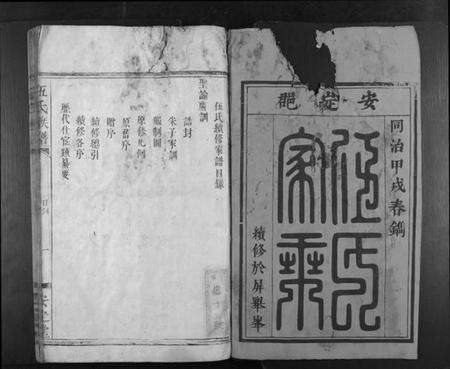 安定郡
同治甲戌春鐫
伍氏
家乘
續修於屏舉峯
伍氏續修家譜目錄
聖諭廣訓
誥封
朱子家訓
服制圖
續修凡例
原舊序
贈序
續修總引
續修各序
歷代仕宦蹟纂要
伍氏族譜
目錄
一